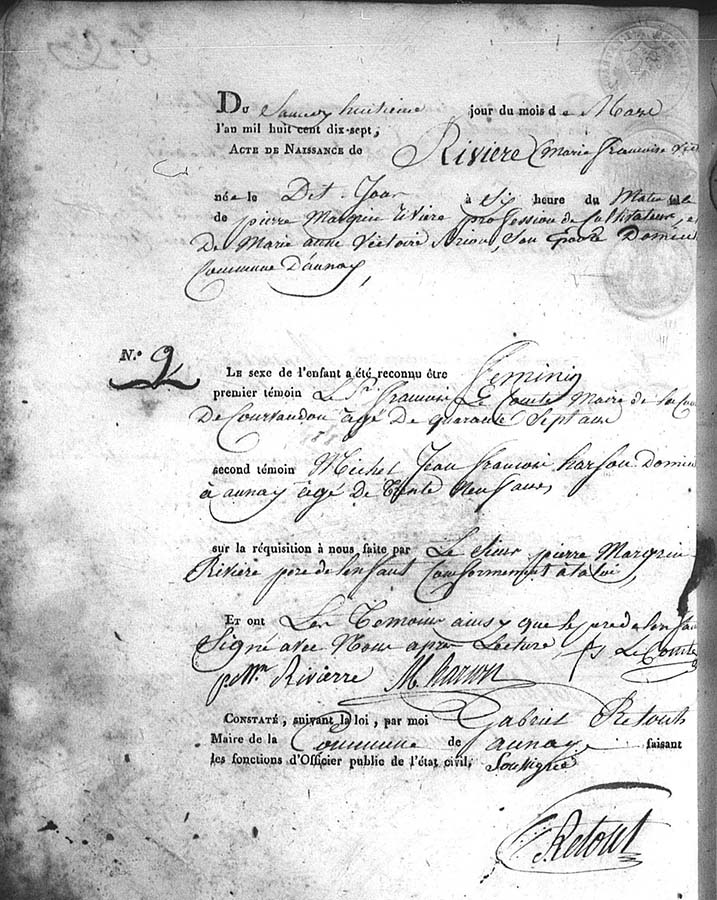 DU Samedy huitieme jour du mois de Mars
l'an mil huit cent dix-sept,
ACTE DE NAISSANCE de Riviere (Marie francoise
née le Dit Jour à Six heure du Matin
de pierre Marquin riviere profession de Cultivateur, e
De Marie anne Victoire Son Epouse Domici
Commune D'aunay,
N.º 9
LE sexe de l'enfant a été reconnu être feminin
premier témoin Le Sr. francois Le Comte Maire de la Co
De Courvaudon agé De quarante Sept ans
second témoin Michel Jean francois harson Domici
à aunay agé De trente Neuf ans
sur la réquisition à nous faite par Le Sieur pierre Marquin
Riviere pere de lenfant Conformement à la loi,
ET ont Les Temoins ainsy que le pere de lenfan
Signé avec Nous apres Lecture, fs Le Comte
Rivierre M harson
CONSTATÉ, suivant la loi, par moi Gabriel Retout
Maire de la Commune de d'aunay faisant
les fonctions d'Officier public de l'état civil, Soussigné
Retout